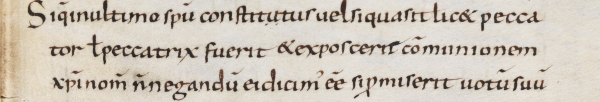 Siq̅inultimo sp̅u constitutus uelsiquasit lic& pecca
tor ł peccatrix fuerit &exposcerit co̅munionem
xp̅i nom̅ n̅negandu̅ ei dicim᾽ ee̅ sip̱miserit uotu̅ suu̅